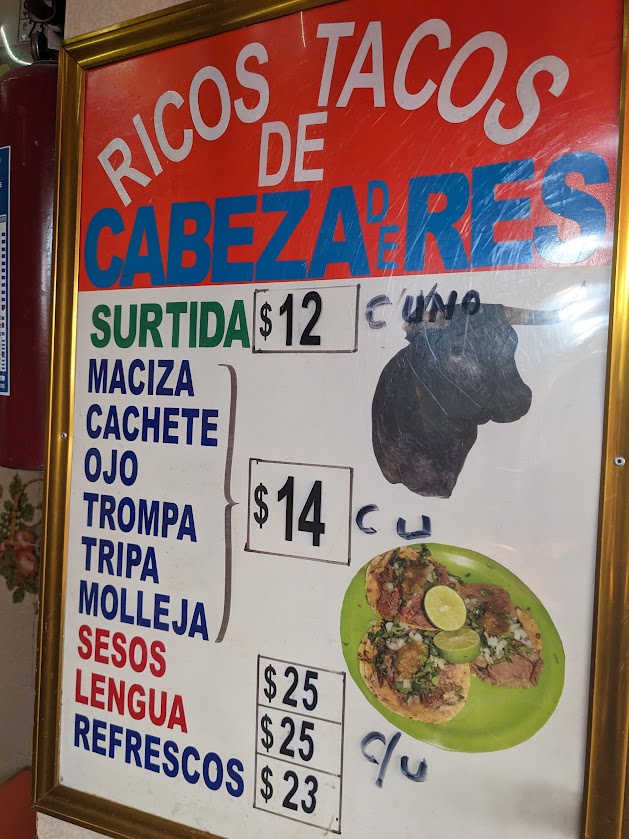 RICOS TACOS
DE
CABEZA DE RES
SURTIDA $12 C/UNO
MACIZA
CACHETE
OJO
TROMPA $14 C U
TRIPA
MOLLEJA
SESOS $25
LENGUA $25 C/U
REFRESCOS $23